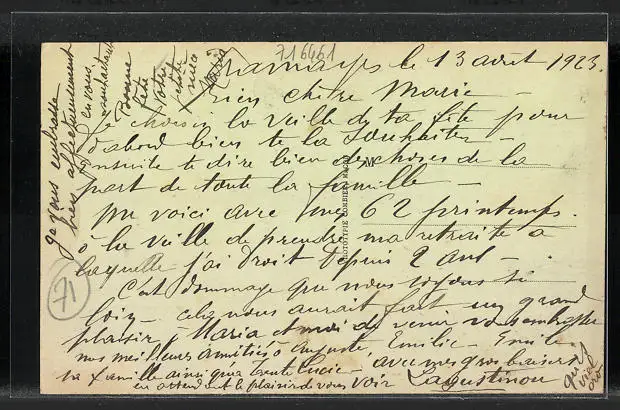 716461
le 13 août 1923.
bien chère Marie —
Je choisis la veille de ta fête pour
d'abord bien te la souhaiter —
ensuite te dire bien des choses de la
part de toute la famille —
me voici avec mes 62 printemps.
à la veille de prendre ma retraite à
laquelle j'ai droit depuis 2 ans —
C'est dommage que nous soyons si
loin — cela nous aurait fait un grand
plaisir à Maria et moi de venir vous embrasser
nos meilleures amitiés à Auguste, Emilie — Emile
sa famille ainsi qu'à tante Lucie — avec mes gros baisers
en attendant le plaisir de vous voir
71
PHOTOTYPIE CORBIER
je vous embrasse
bien affectueusement
en vous
souhaitant
Bonne
fête
votre
petite
Maria